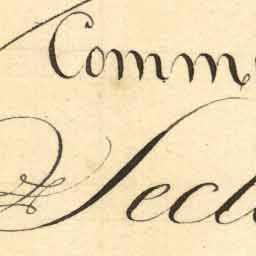 Comm
Secti